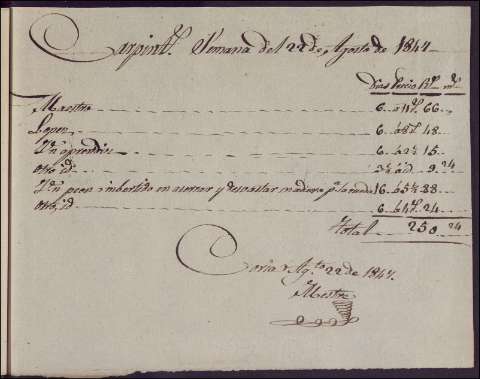 Carpint.ª Semana del 22 de Agosto de 1847
Dias Precio R.s m.s
Maestro 6 á 11 r.s 66
Lopez 6 á 8 r.s 48
Yd. aprendiz 6 á 2½ 15
otro, id. á id 9 24
Yd. peon imbertido en aserrar y desvastar madera p.ª la rueda 16 á 5½ 88
otro, id 6 á 4 r.s 24
Total 250 24
Coria y Ag.to 22 de 1847.
Maestro